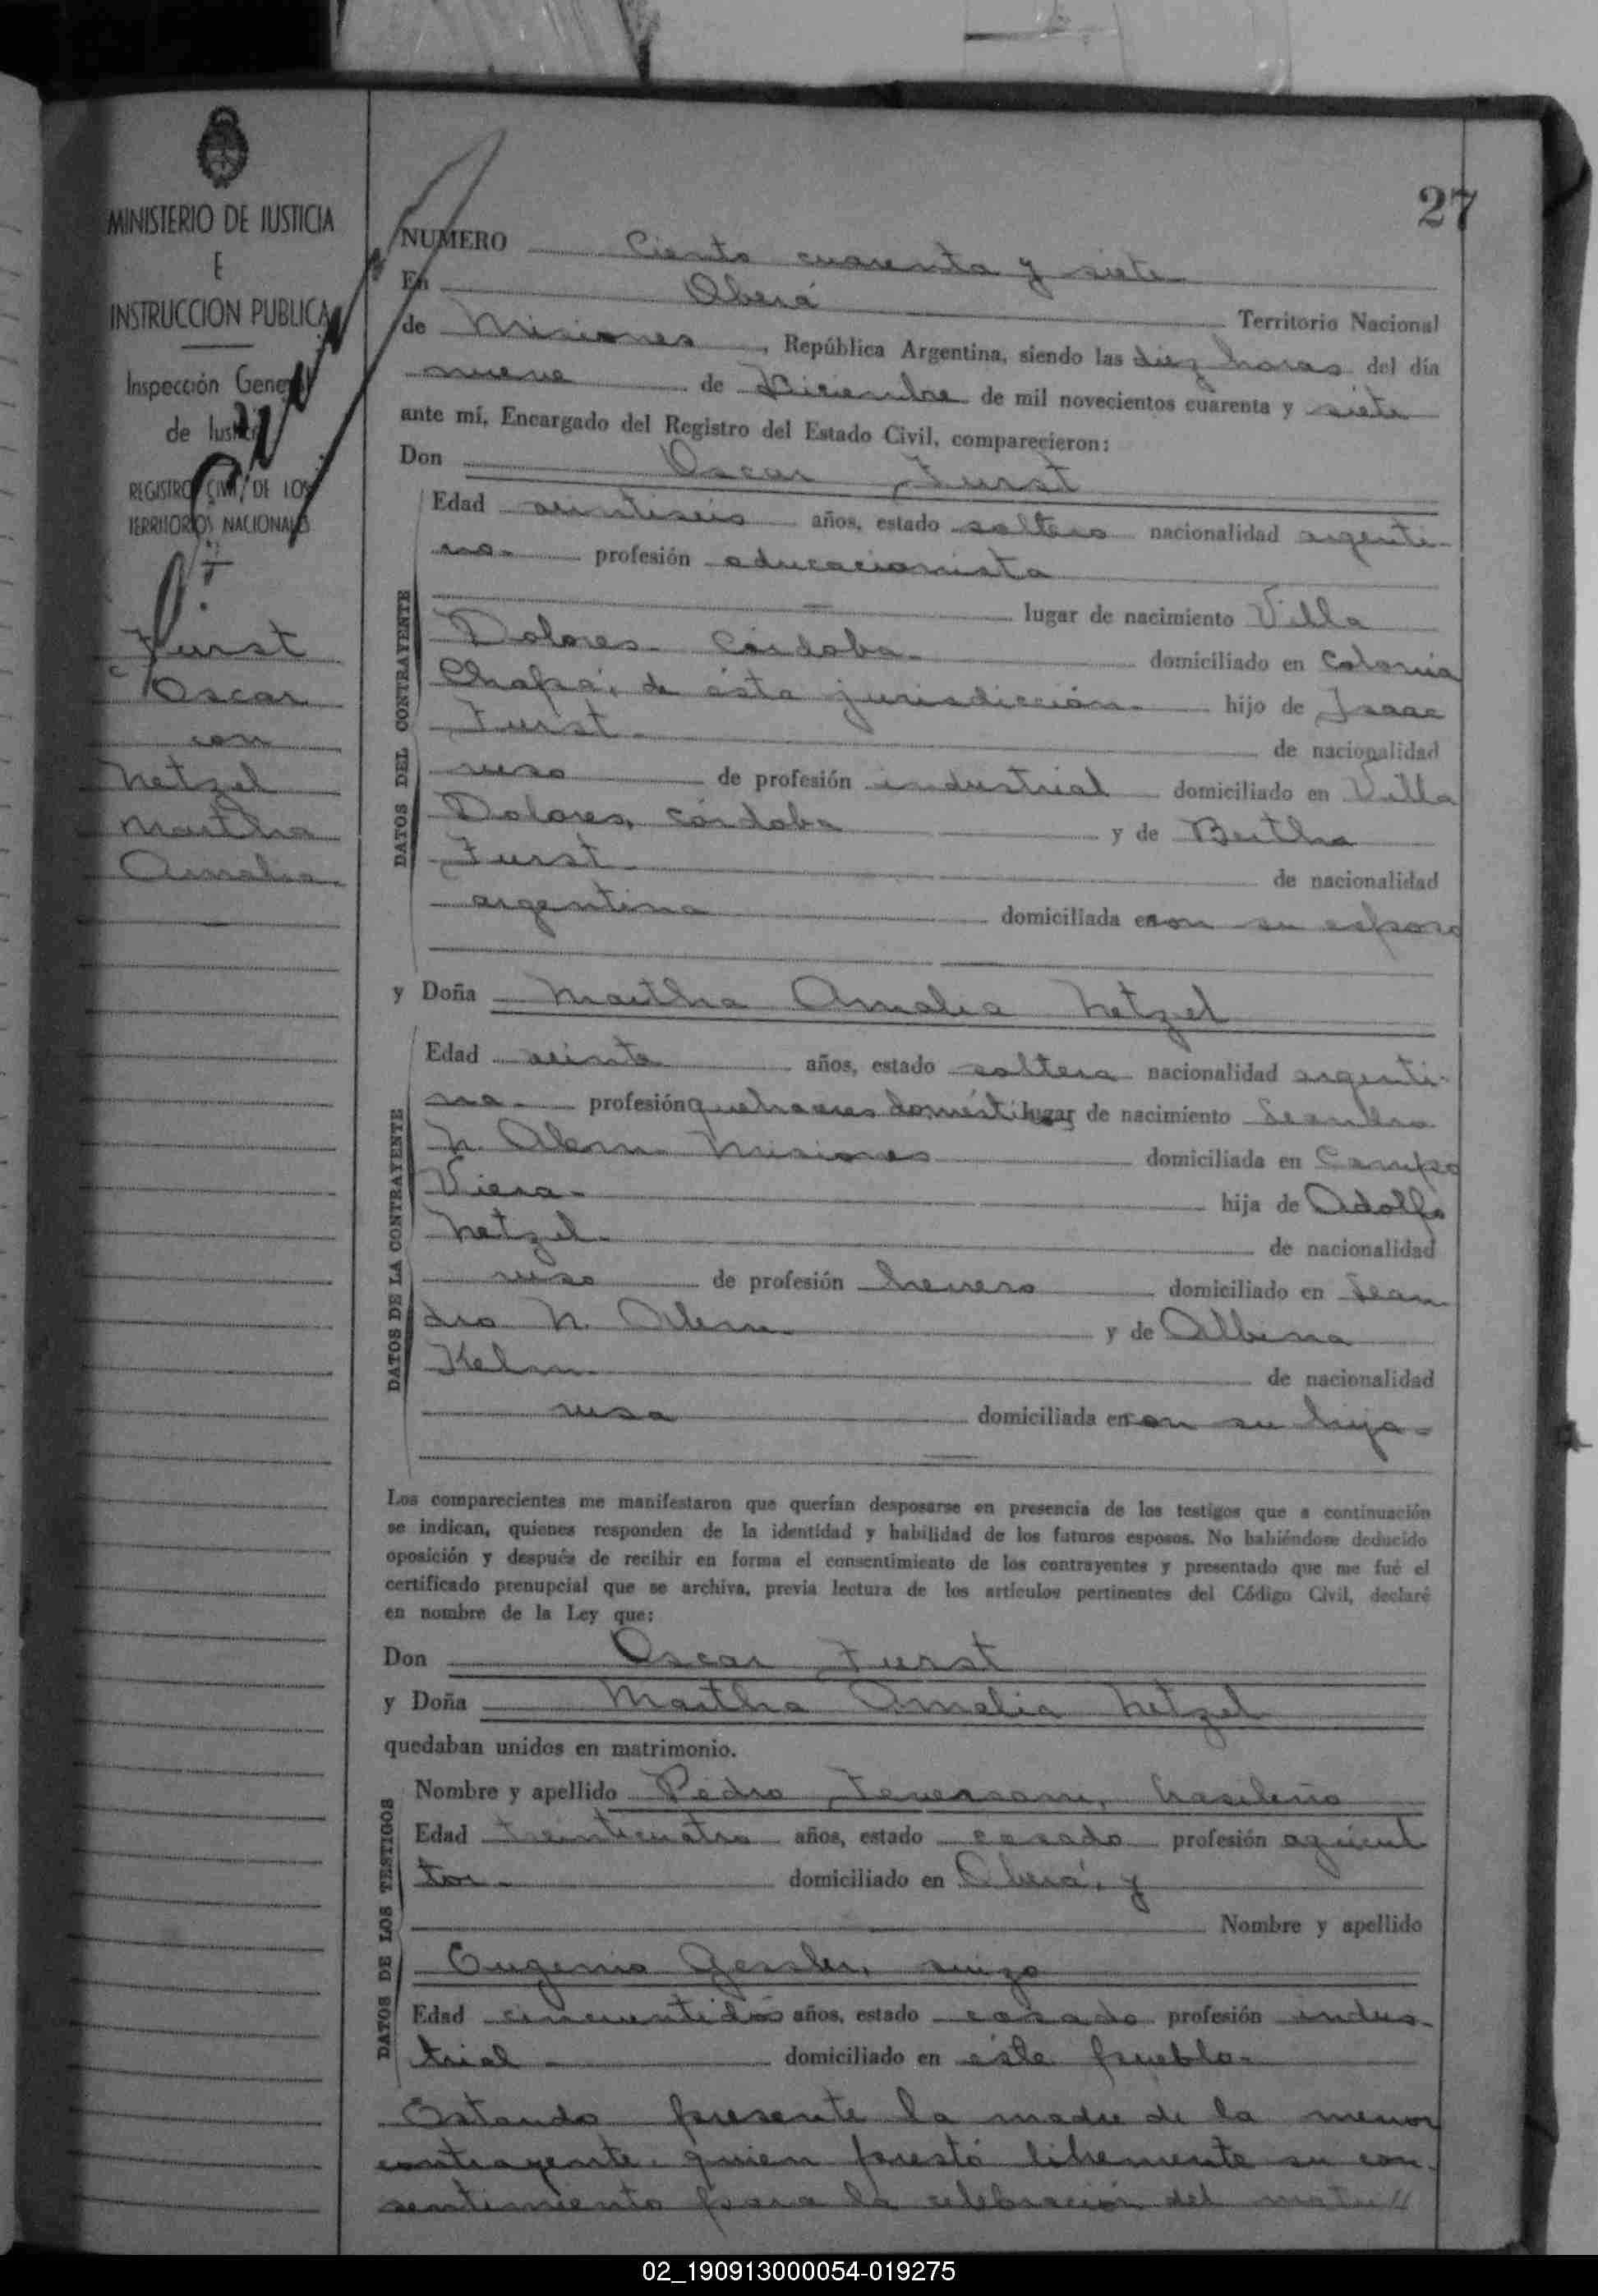 27
MINISTERIO DE JUSTICIA
E
INSTRUCCION PUBLICA
Inspección General
de Justicia
REGISTRO CIVIL DE LOS
TERRITORIOS NACIONALES
Furst
Oscar
con
Netzel
Martha
Amalia
NUMERO Ciento cuarenta y siete
En Oberá Territorio Nacional
de Misiones, República Argentina, siendo las diez horas del día
nueve de Diciembre de mil novecientos cuarenta y siete
ante mí, Encargado del Registro del Estado Civil, comparecieron:
Don Oscar Furst
Edad veintiseis años, estado soltero nacionalidad argenti-
no- profesión educacionista
lugar de nacimiento Villa
Dolores- Córdoba- domiciliado en Colonia
Chapá, de ésta jurisdicción- hijo de Isaac
Furst- de nacionalidad
ruso de profesión industrial domiciliado en Villa
Dolores, Córdoba y de Bertha
Furst de nacionalidad
argentina domiciliada en con su esposo
DATOS DEL CONTRAYENTE
y Doña Martha Amalia Netzel
Edad veinte años, estado soltera nacionalidad argenti-
na- profesión quehaceres domésti lugar de nacimiento Leandro
N. Alem- Misiones domiciliada en Campo
Viera- hija de Adolfo
Netzel- de nacionalidad
ruso de profesión herrero domiciliado en Lean
dro N. Alem y de Albina
Kelm de nacionalidad
rusa domiciliada en con su hija-
DATOS DE LA CONTRAYENTE
Los comparecientes me manifestaron que querían desposarse en presencia de los testigos que a continuación
se indican, quienes responden de la identidad y habilidad de los futuros esposos. No habiéndose deducido
oposición y después de recibir en forma el consentimiento de los contrayentes y presentado que me fué el
certificado prenupcial que se archiva, previa lectura de los artículos pertinentes del Código Civil, declaré
en nombre de la Ley que:
Don Oscar Furst
y Doña Martha Amalia Netzel
quedaban unidos en matrimonio.
Nombre y apellido Pedro brasileño
Edad treinticuatro años, estado casado profesión agricul
tor- domiciliado en Oberá, y
Nombre y apellido
Eugenio Gessler, suizo
Edad cincuentidós años, estado casado profesión indus-
trial- domiciliado en éste pueblo-
DATOS DE LOS TESTIGOS
Estando presente la madre de la menor
contrayente, quien prestó libremente su con-
sentimiento para la celebración del matri//
02_190913000054-019275